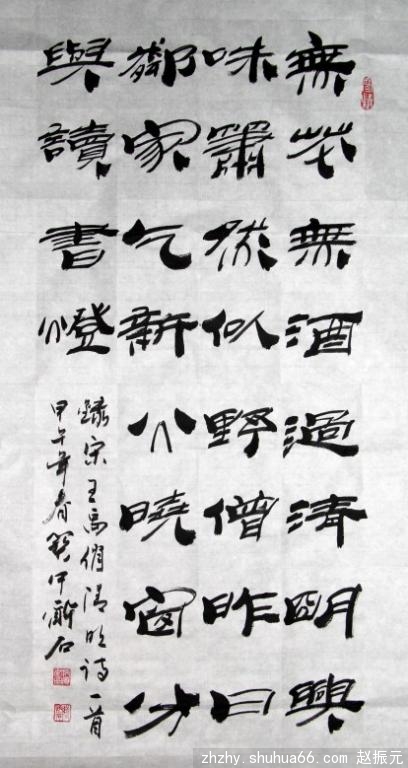 無花無酒過清明興
味蕭然似野僧昨日
鄰家气新火曉窗分
與讀書燈
錄宋王禹偁清明詩一首
甲午年春
zhzhy.shuhua66.com 赵振元